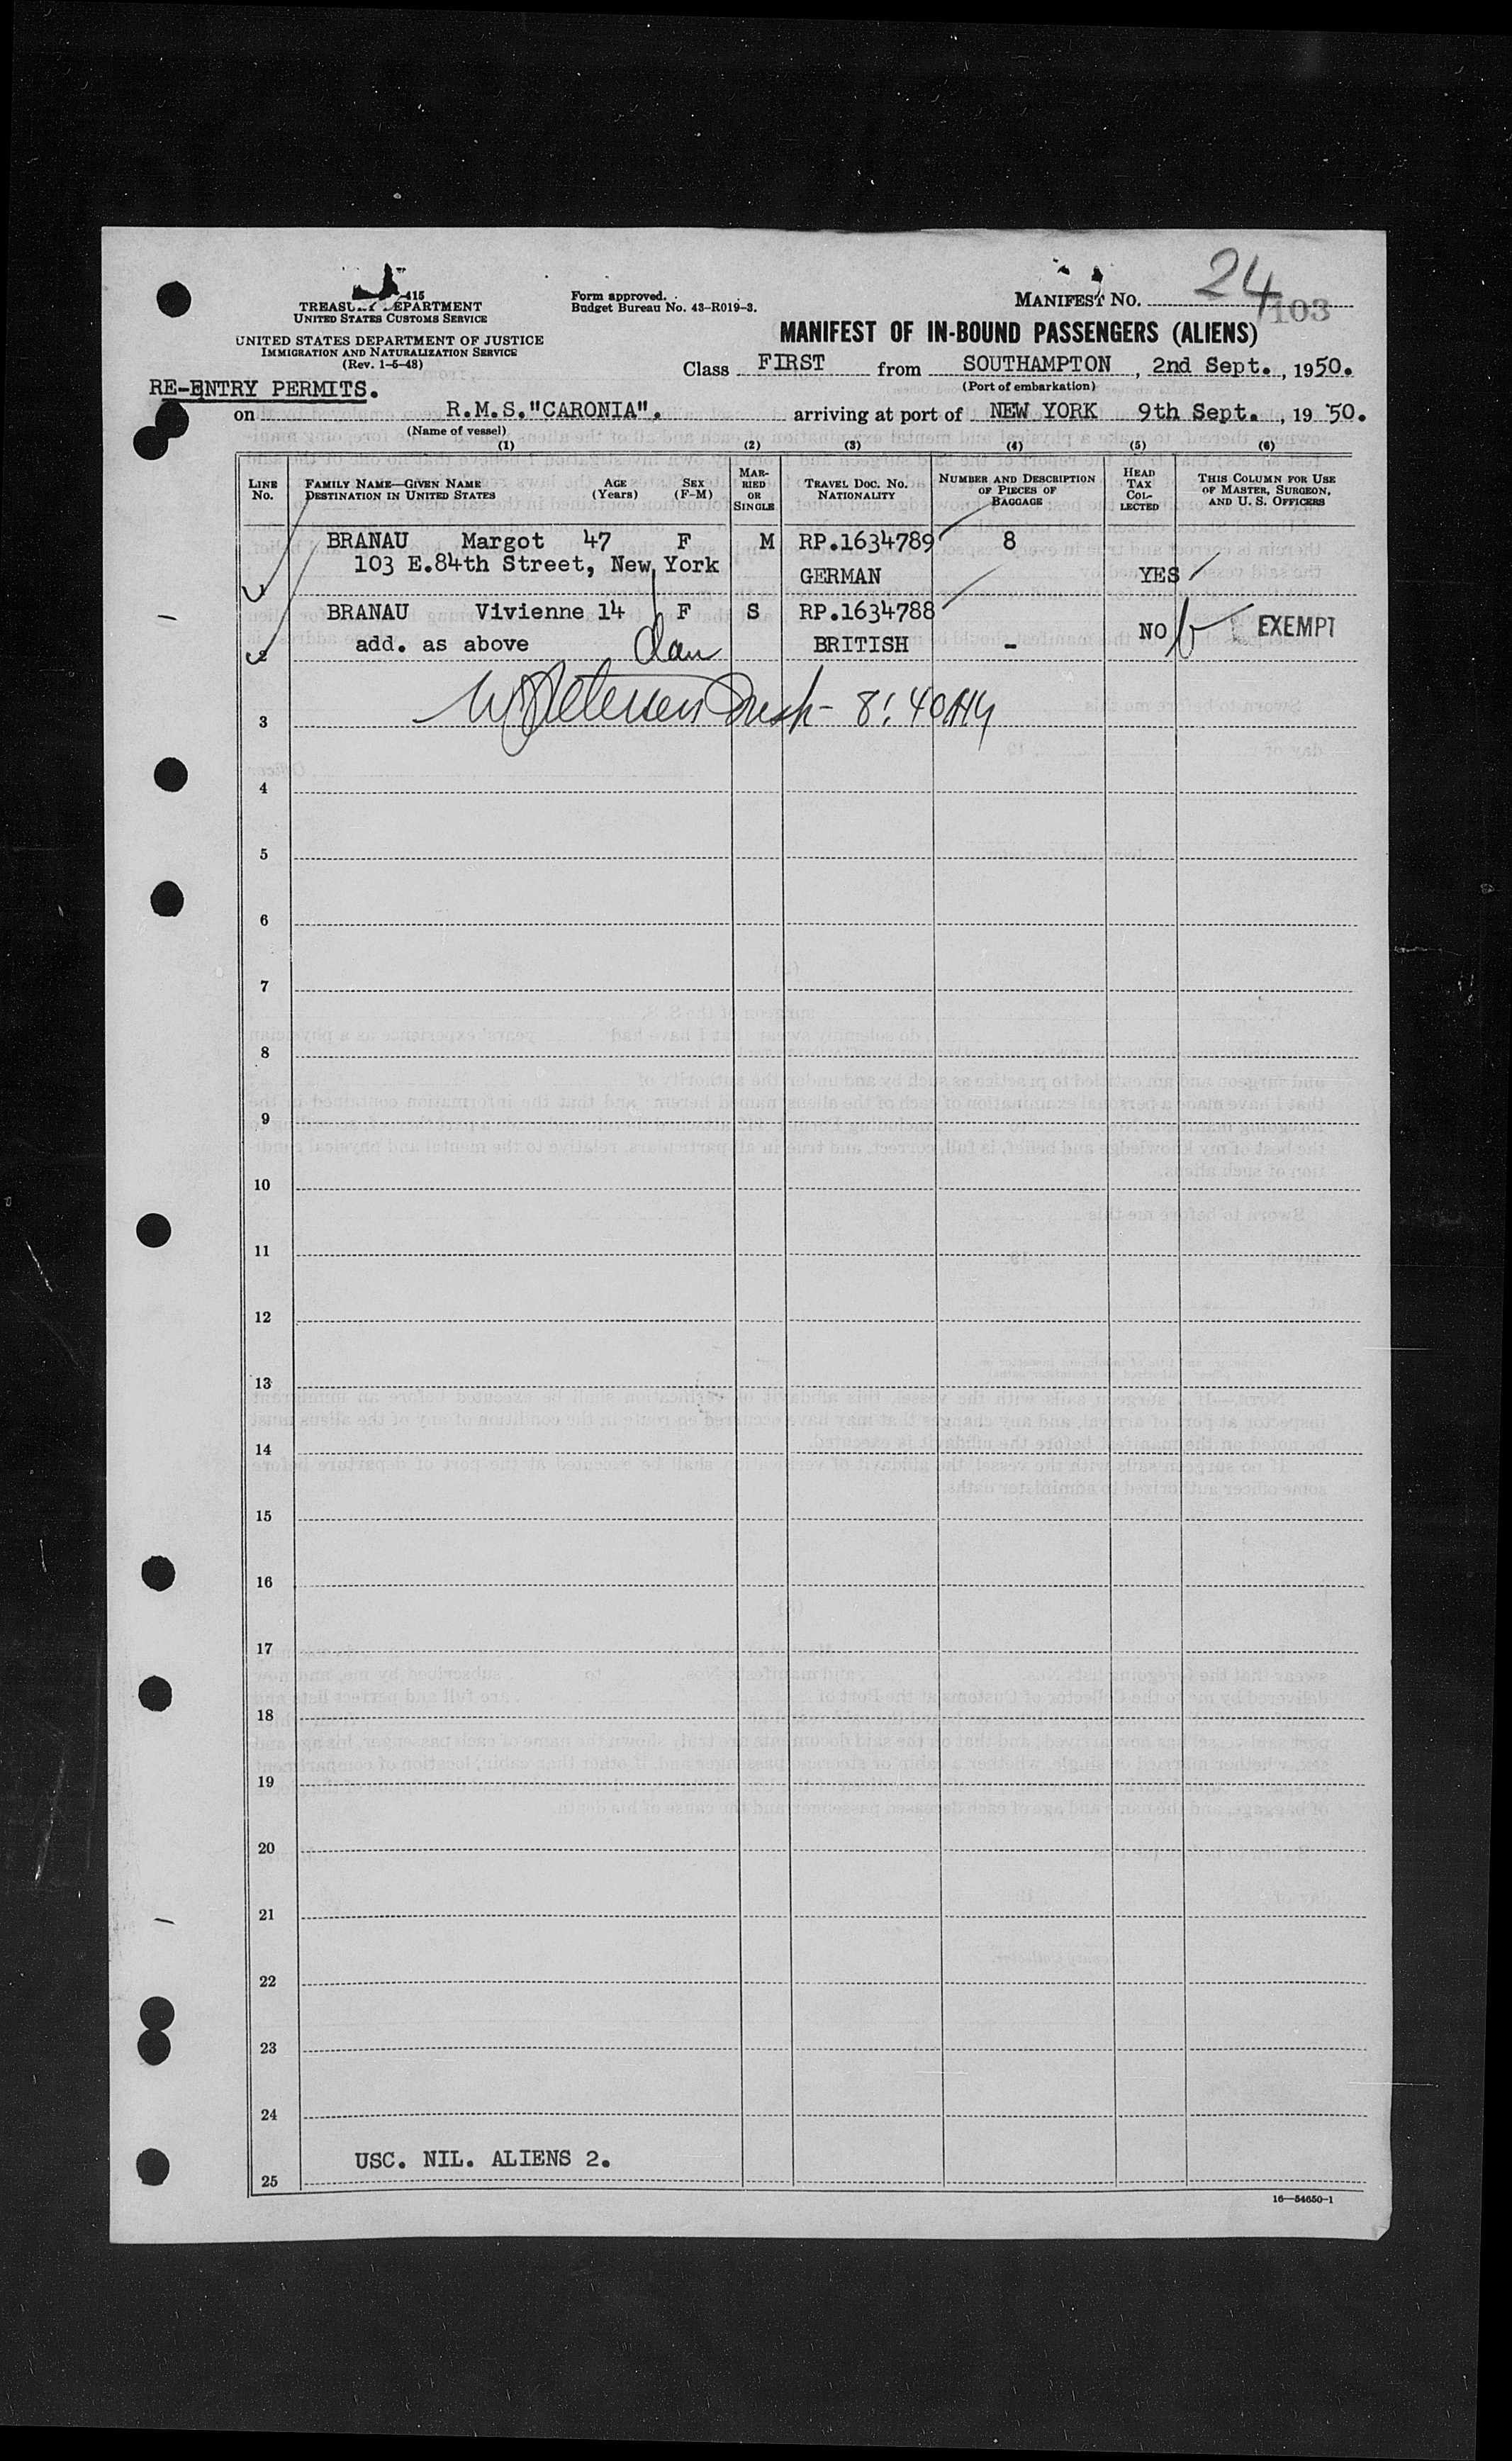 24
103
415
TREASURY DEPARTMENT
UNITED STATES CUSTOMS SERVICE
UNITED STATES DEPARTMENT OF JUSTICE
IMMIGRATION AND NATURALIZATION SERVICE
(Rev. 1-5-48)
Form approved.
Budget Bureau No. 43-R019-3.
MANIFEST NO.
MANIFEST OF IN-BOUND PASSENGERS (ALIENS)
Class FIRST from SOUTHAMPTON, 2nd Sept., 1950.
(Port of embarkation)
RE-ENTRY PERMITS.
on R.M.S."CARONIA". arriving at port of NEW YORK 9th Sept., 19 50.
(Name of vessel)
(1) (2) (3) (4) (5) (6)
LINE NO. FAMILY NAME—GIVEN NAME DESTINATION IN UNITED STATES AGE (Years) SEX (F-M) MARRIED OR SINGLE TRAVEL DOC. NO. NATIONALITY NUMBER AND DESCRIPTION OF PIECES OF BAGGAGE HEAD TAX COLLECTED THIS COLUMN FOR USE OF MASTER, SURGEON, AND U. S. OFFICERS
BRANAU Margot 47 F M RP.1634789 8
103 E.84th Street, New York GERMAN YES
BRANAU Vivienne 14 F S RP.1634788
2 add. as above BRITISH - NO EXEMPT
3 8:40
4
5
6
7
8
9
10
11
12
13
14
15
16
17
18
19
20
21
22
23
24
USC. NIL. ALIENS 2.
25
16—54650-1